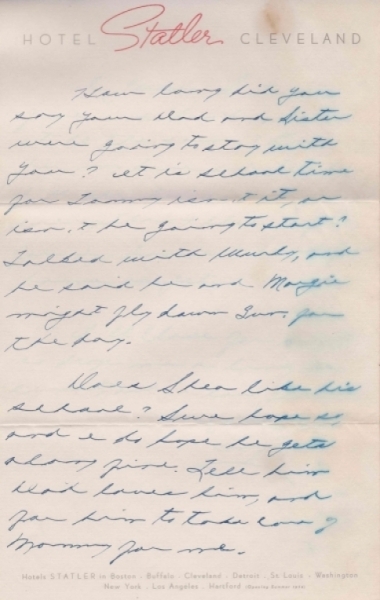 HOTEL Statler CLEVELAND
How long did you
say your Dad and Sister
were going to stay with
you? It is school time
for Tommy isn't it, or
isn't he going to start?
Talked with Murky, and
he said he and Margie
might fly down Sun. for
the day.
Does Shea like his
school? Sure hope so,
and I do hope he gets
along fine. Tell him
Dad loves him, and
for him to take care of
Mommy for me.
Hotels STATLER in Boston · Buffalo · Cleveland · Detroit · St. Louis · Washington
New York · Los Angeles · Hartford